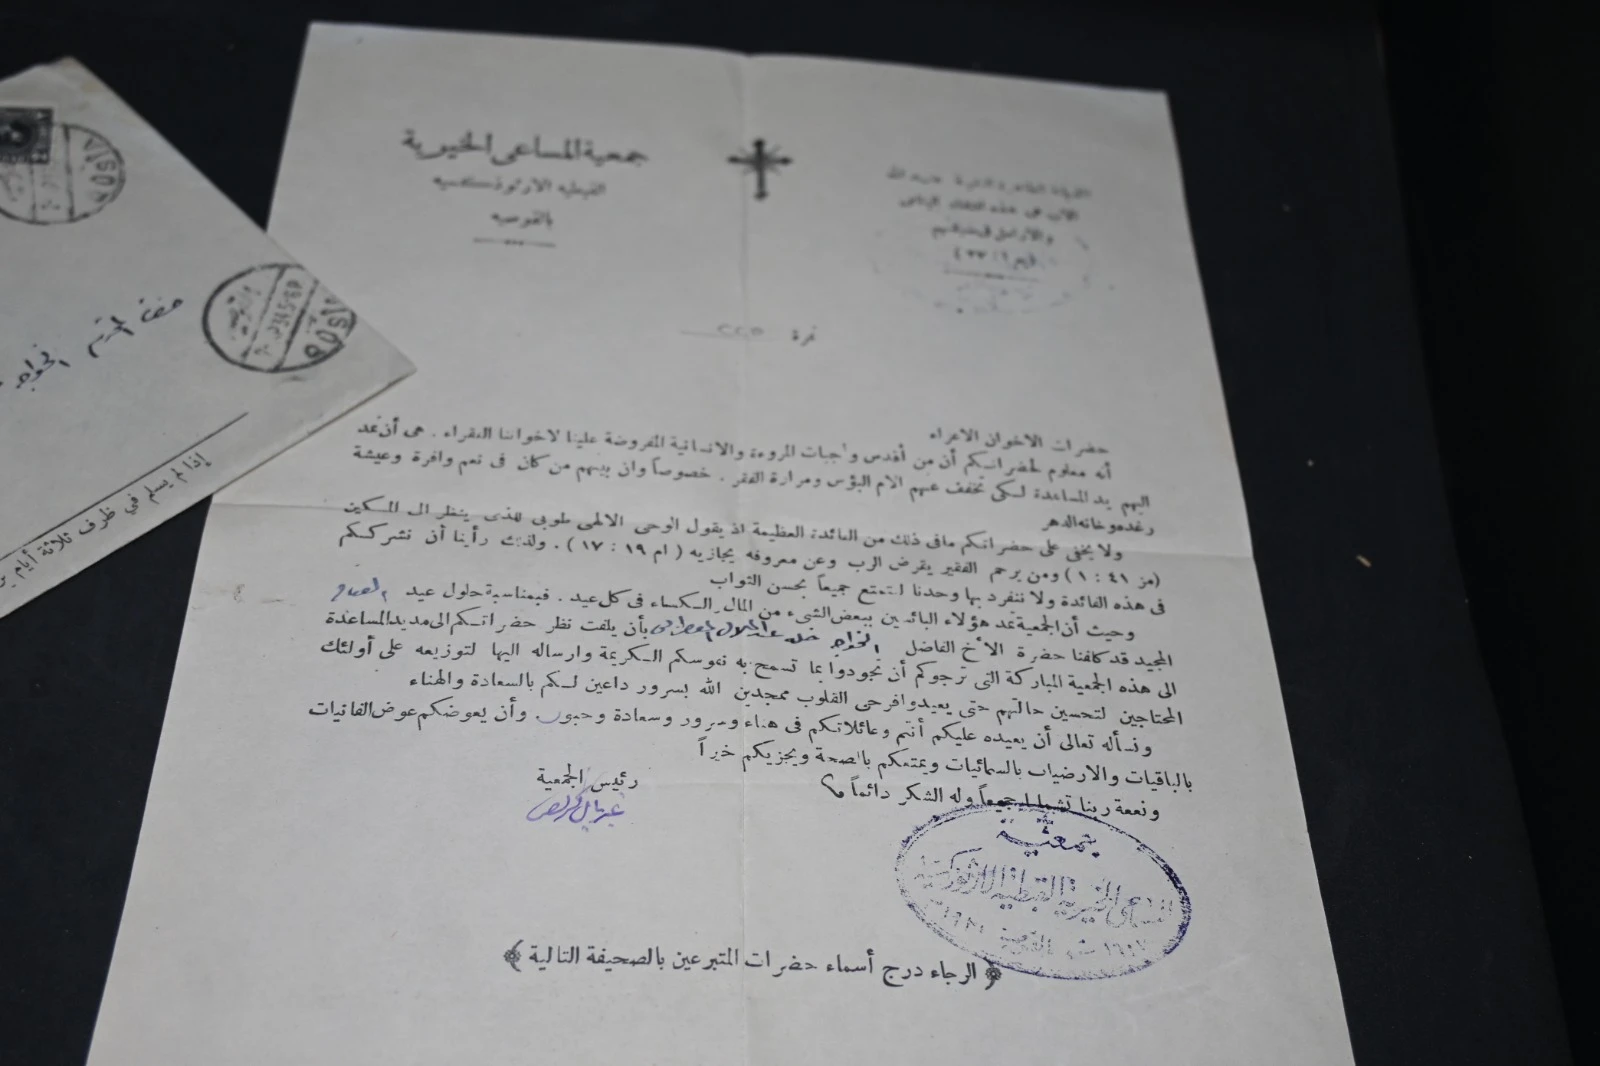 جمعية المساعى الخيرية
القبطيه الارثوذكسيه
بالقوصيه
الديانة الطاهرة النقية عند الله
الآب هى هذه افتقاد اليتامى
والارامل فى ضيقتهم
نمرة ٢٢٥
حضرات الاخوان الاعزاء
أنه معلوم لحضراتكم أن من أقدس واجبات المروءة والانسانية المفروضة علينا لاخواننا الفقراء . هى أن نمد
اليهم يد المساعدة لكى نخفف عنهم الام البؤس ومرارة الفقر . خصوصاً وان بينهم من كان فى نعم وافرة وعيشة
رغده وخانه الدهر
ولا يخفى على حضراتكم مافى ذلك من الفائدة العظيمة اذ يقول الوحى الالهى طوبى للذى ينظر الى المسكين
(مز ٤١ : ١) ومن يرحم الفقير يقرض الرب وعن معروفه يجازيه ( ام ١٩ : ١٧ ) . ولذلك رأينا أن نشرككم
فى هذه الفائدة ولا ننفرد بها وحدنا لنتمتع جميعاً بحسن الثواب
وحيث أن الجمعية تمد هؤلاء البائسين ببعض الشىء من المال والكساء فى كل عيد . فبمناسبة حلول عيد
المجيد قد كلفنا حضرة الأخ الفاضل الخواجه بأن يلفت نظر حضراتكم الى مديد المساعدة
الى هذه الجمعية المباركة التى ترجوكم أن تجودوا بما تسمح به نفوسكم الكريمة وارساله اليها لتوزيعه على أولئك
المحتاجين لتحسين حالتهم حتى يعيدوا فرحى القلوب ممجدين الله بسرور داعين لكم بالسعادة والهناء
ونسأله تعالى أن يعيده عليكم أنتم وعائلاتكم فى هناء وسرور وسعادة وحبور وأن يعوضكم عوض الفانيات
بالباقيات والارضيات بالسمائيات ويمتعكم بالصحة ويجزيكم خيراً
ونعمة ربنا تشملنا جميعاً وله الشكر دائماً
رئيس الجمعية
جمعية
المساعى الخيرية القبطية الارثوذكسية
الرجاء درج أسماء حضرات المتبرعين بالصحيفة التالية
حضرة المحترم الخواجه
إذا لم يسلم في ظرف ثلاثة أيام